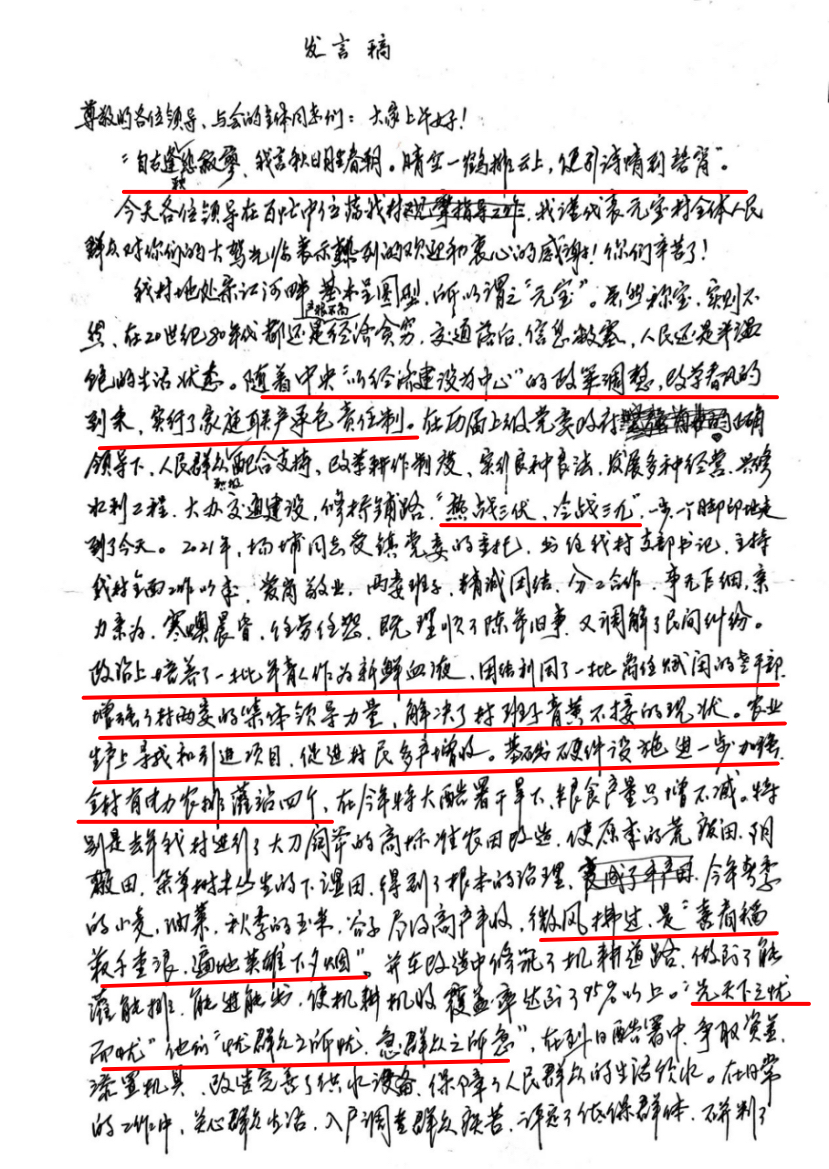 发言稿
尊敬的各位领导、与会的全体同志们：大家上午好！
“自古逢秋悲寂寥，我言秋日胜春朝。晴空一鹤排云上，便引诗情到碧霄”。
今天各位领导在百忙中位落我村观摩指导工作，我谨代表元宝村全体人民
群众对你们的大驾光临表示热烈的欢迎和衷心的感谢！你们辛苦了！
我村地处 江河畔，基本呈圆型，所以谓之“元宝”。虽然称宝，实则不
然，在20世纪80年代都还是经济贫穷，交通落后，信息闭塞，人民还是半温
饱的生活状态。随着中央“以经济建设为中心”的政策调整，改革春风的
到来，实行了家庭联产承包责任制。在历届上级党委政府 的正确
领导下，人民群众积极配合支持、改革耕作制度，索引良种良法，发展多种经营，兴修
水利工程，大办交通建设，修桥铺路，“热战三伏、冷战三九”，一步一个脚印地走
到了今天。2021年，杨埔同志受镇党委的委托，出任我村支部书记，主持
我村全面工作以来，爱岗敬业，两委班子，精诚团结，分工合作，事无巨细，亲
力亲为，寒暑晨昏，任劳任怨，既理顺了陈年旧事，又调解了民间纠纷。
政治上培养了一批年青人作为新鲜血液，团结利用了一批离任赋闲的老干部，
增强了村两委的集体领导力量，解决了村班子青黄不接的现状。农业
生产上寻找和引进项目，促进村民多产增收。基础硬件设施进一步加强，
全村有电力农排灌站四个，在今年特大酷署干旱下，粮食产量只增不减。特
别是去年我村进行了大刀阔斧的高标准农田改造，使原来的荒 田，阴
田，杂草树木丛生的下湿田，得到了根本的治理，变成了丰产田，今年春季
的小麦，油菜，秋季的玉米，谷子 高产丰收，微风拂过，是“喜看稻
菽千重浪，遍地英雄下夕烟”。并在改造中修筑了机耕道路，做到了能
灌能排，能进能出，使机耕机收覆盖率达到了95%以上。“先天下之忧
而忧”他们“忧群众之所忧，急群众之所急”，在烈日酷署中，争取资金，
添置机具，改造完善了供水设备，保障了人民群众的生活饮水。在日常
的工作中，关心群众生活，入户调查群众疾苦，评定了低保群体，